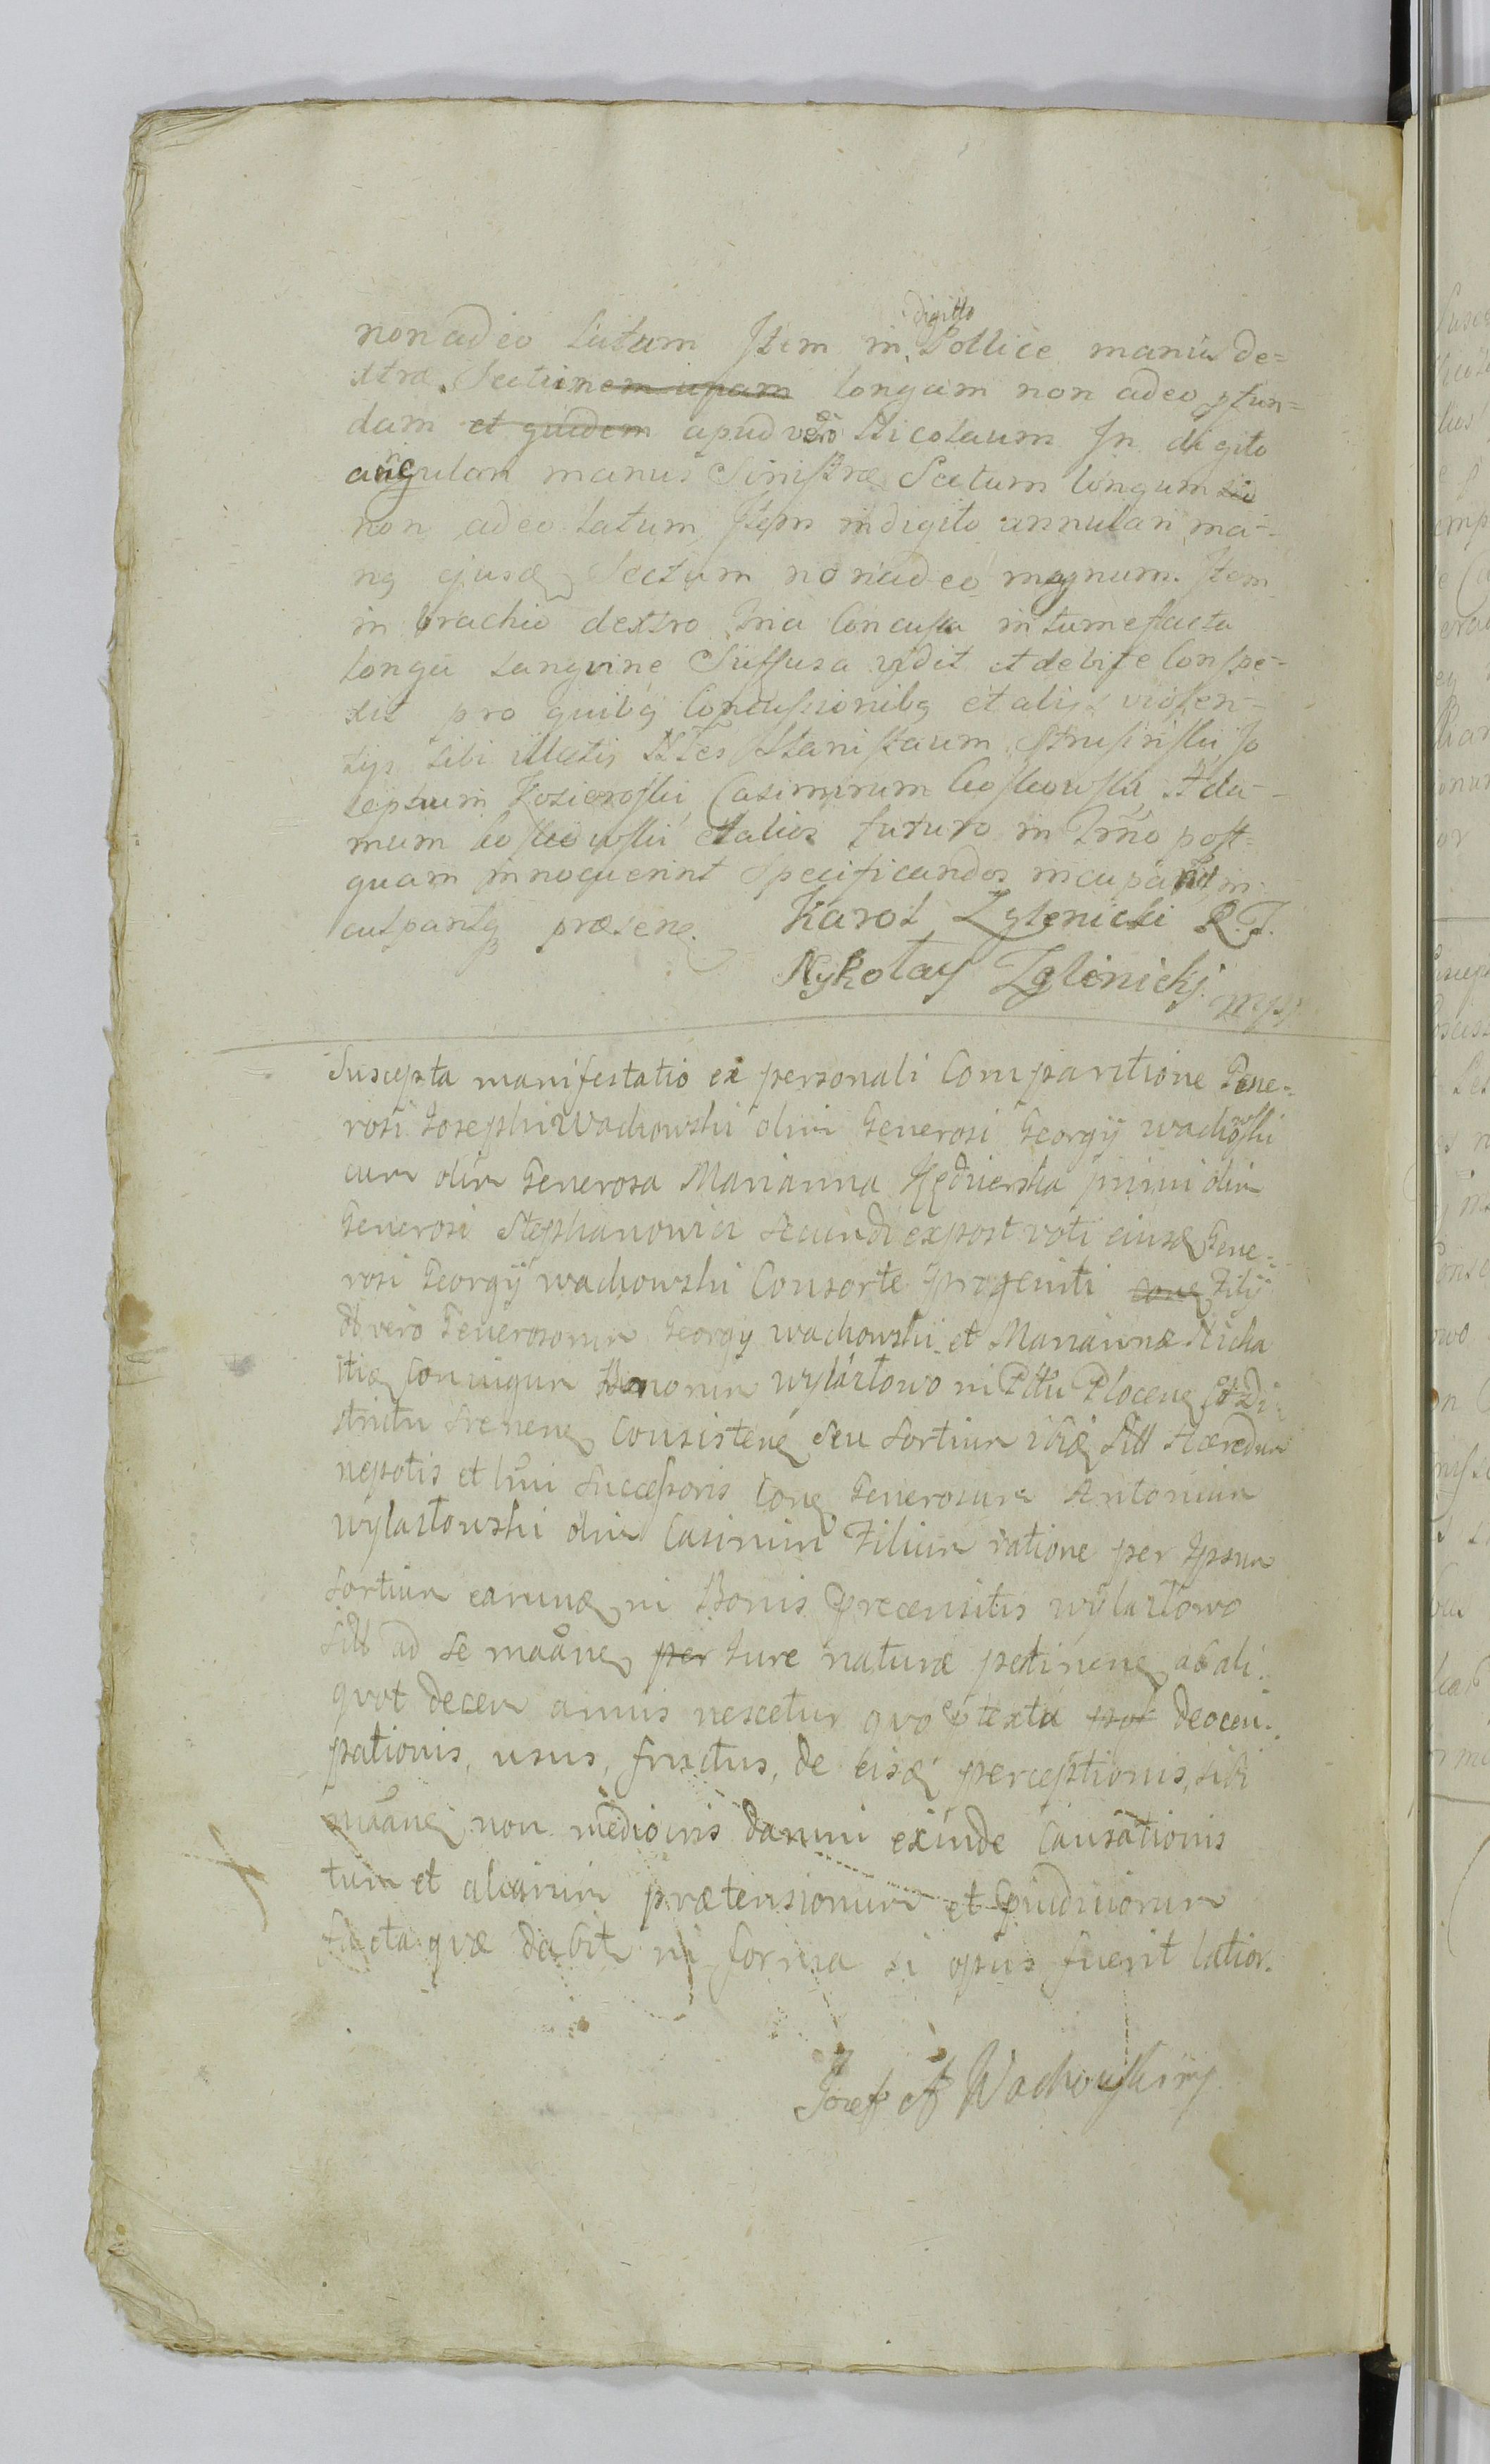 non adeo Latum Item in digitto Pollice manus de=
xtræ Sectu longam non adeo pfun=
dam et quidem apud vero Nicolaum In digito
angulari manus Sinistræ Sectum longum
non adeo latum Item in digito annulari ma=
nq ejusd Sectum non adeo magnum. Item
in brachio dextro tria Concussa intumefacta
longa sangvine Suffusa vidit et debite Conspe=
xit pro quibq Concussionibq et alijs violen=
tijs sibi illatis
sephum Casimirum Ada=
mum et alios futuro in Trno post=
quam innoguerint Specificandos inculpant in
culpantq præsene. Karol Zglenicki R.T.
Nykołay Zglenickj mpp
Suscepta manifestatio ex personali Comparitione Gene=
rosi Josephi Wachowski olim Generosi Georgij wachowski
cum olim Generosa Marianna primi olim
Generosi secundi expost voti eiusd Gene=
rosi Georgij wachowski Consorte progeniti Filij
ab vero Generosorum Georgij wachowski et Mariannæ
Conjugum Bonorum wylazłowo in Pttu Plocen di=
strictu Srenen Consisten seu Sortium ibid sitt Hæredum
nepotis et Successoris Con Generosum Antonium
wylazłowski olim Casimiri Filium ratione per Ipsum
Sortium earund in Bonis præcensitis wylazłowo
sitt ad se maane per Jure naturæ petinene ab ali=
quot decem annis quo ptextu deoccu=
pationis, usus, fructus, de eisd perceptionis, sibi
maane non mediocris damni exinde Causationis
tum et aliarum prætensionum et
facta quæ dabit in forma si opus fuerit latior.
Jozef A Wachowski mp